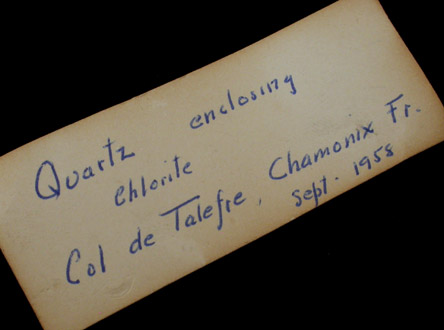 Quartz enclosing
Chlorite
Col de Talefre, Chamonix Fr.
Sept. 1958